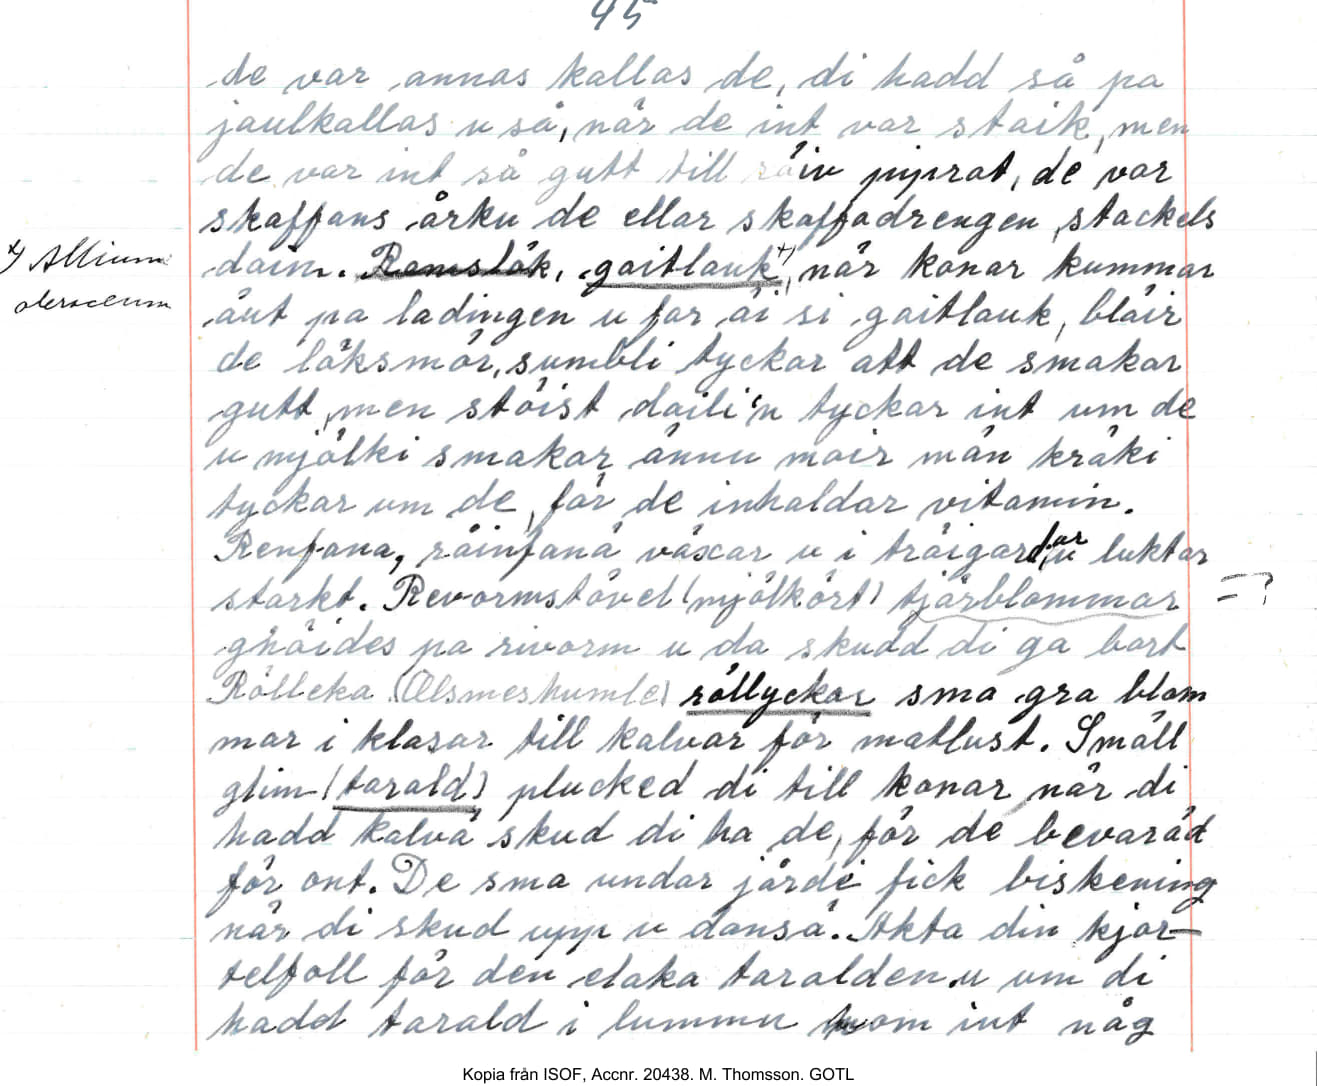 45
de var annas kallas de, di hadd så pa
jaulkallas u så, när de int var staik, men
de var int så gutt till räiv piprat, de var
skaffans årku de ellar skaffadrengen, stackels
dain. Ramslök, gaitlauk x), när konar kummar
x) Allium
oleraceum
äut pa ladingen u far äi si gaitlauk, bläir
de löksmör, sumbli tyckar att de smakar
gutt, men stöist daili'n tyckar int um de
u mjölki smakar ännu mair män kräki
tyckar um de, för de inhaldar vitamin.
Renfana, räinfanä växar u i träigardar, u luktar
starkt. Revormstövel (mjölkört) tjärblommar = ?
gnöides pa rivorm u da skudd di ga bort
Rölleka (Ölsmeshumle) röllyckar sma gra blom
mar i klasar till kalvar för matlust. Smäll
glim (tarald) plucked di till konar när di
hadd kalvä skud di ha de, för de bevaräd
för ont. De sma undar järdi fick biskening
när di skud upp u dansä. Akta din kjor-
telfoll för den elaka taralden u um di
hadd tarald i lummu kom int någ
Kopia från ISOF, Accnr. 20438. M. Thomsson. GOTL